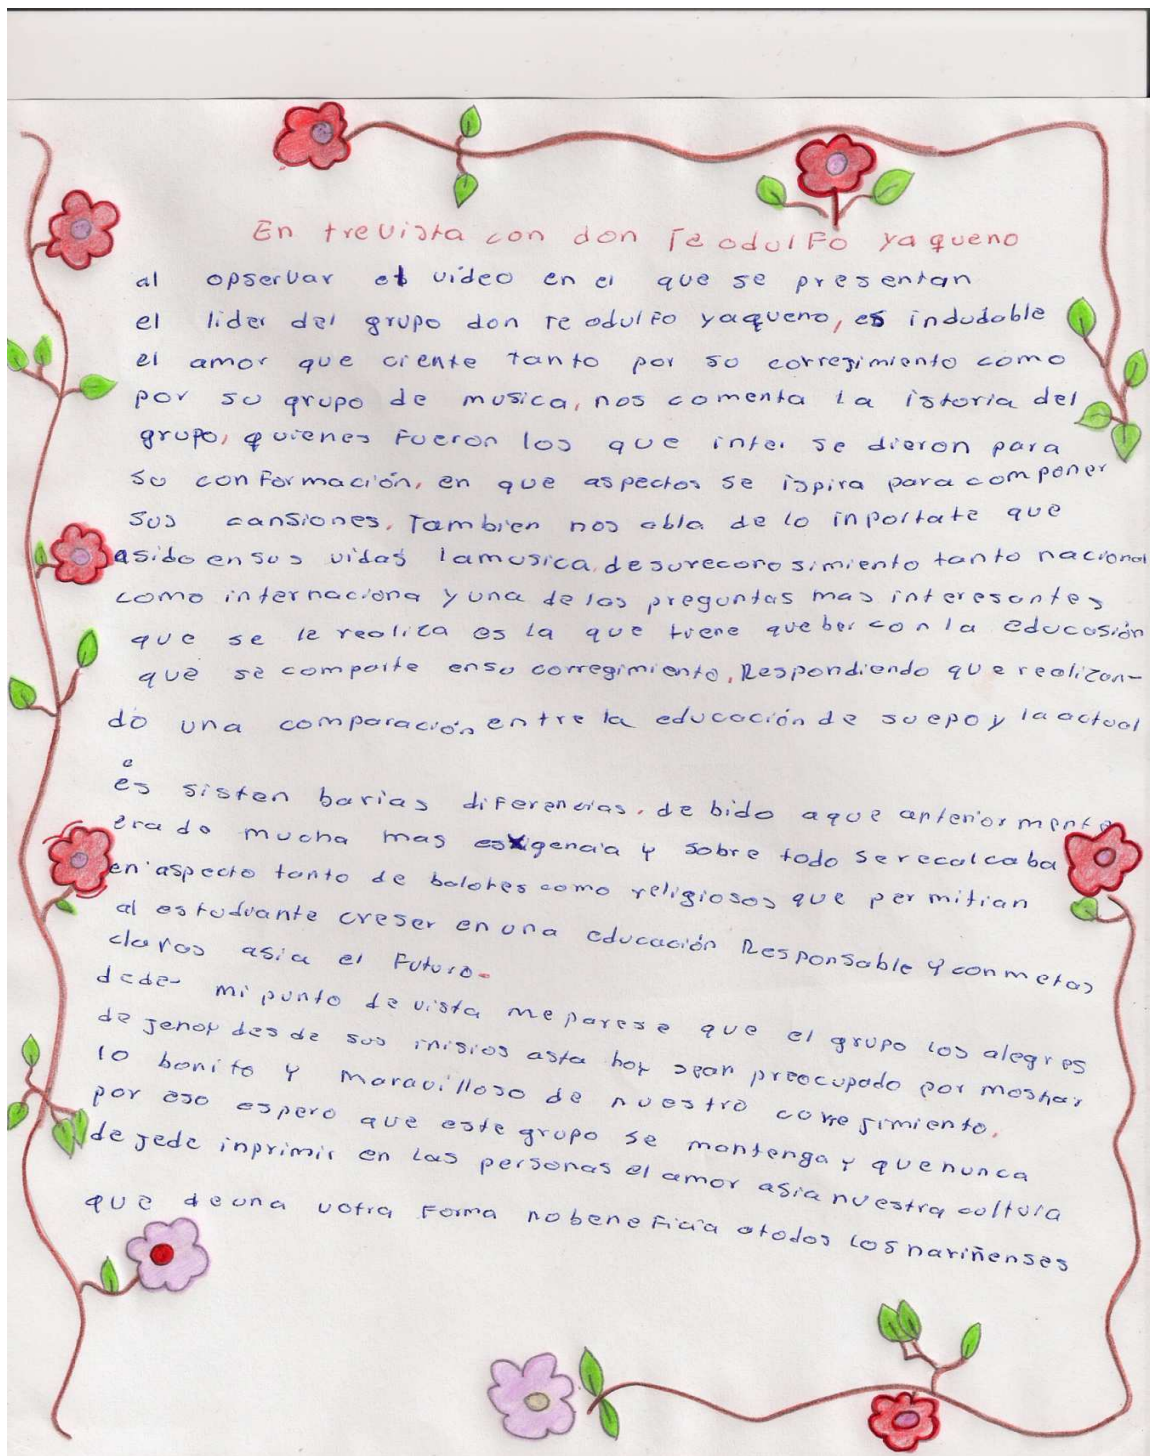 En trevista con don Teodulfo yaqueno
al opservar el video en el que se presentan
el lider del grupo don teodulfo yaqueno, es indudable
el amor que ciente tanto por su corregimiento como
por su grupo de musica, nos comenta la istoria del
grupo, quienes fueron los que inter se dieron para
su conformación, en que aspectos se ispira para componer
sus cansiones, Tambien nos abla de lo inportate que
asido en sus vidas lamusica, desurecoro simiento tanto nacional
como internaciona y una de las preguntas mas interesantes
que se le realiza es la que tiene queber con la educasión
que se comparte ensu corregimiento, Respondiendo que realizan-
do una comparación entre la educación de suepo y la actual
es sisten barias diferencias, de bido aque anteriormente
era do mucha mas esxigencia y sobre todo se recalcaba
en aspecto tanto de balores como religiosos que permitian
al estudiante creser en una educación Responsable y con metas
claras asia el futuro.
dede- mi punto de vista meparese que el grupo los alegres
de jenoy desde sus inisios asta hoy sean preocupado por mostrar
lo bonito y maravilloso de nuestro corregimiento,
por eso espero que este grupo se mantenga y que nunca
de jede inprimir en las personas el amor asia nuestra cultura
que deuna uotra forma nobeneficia atodos los nariñenses